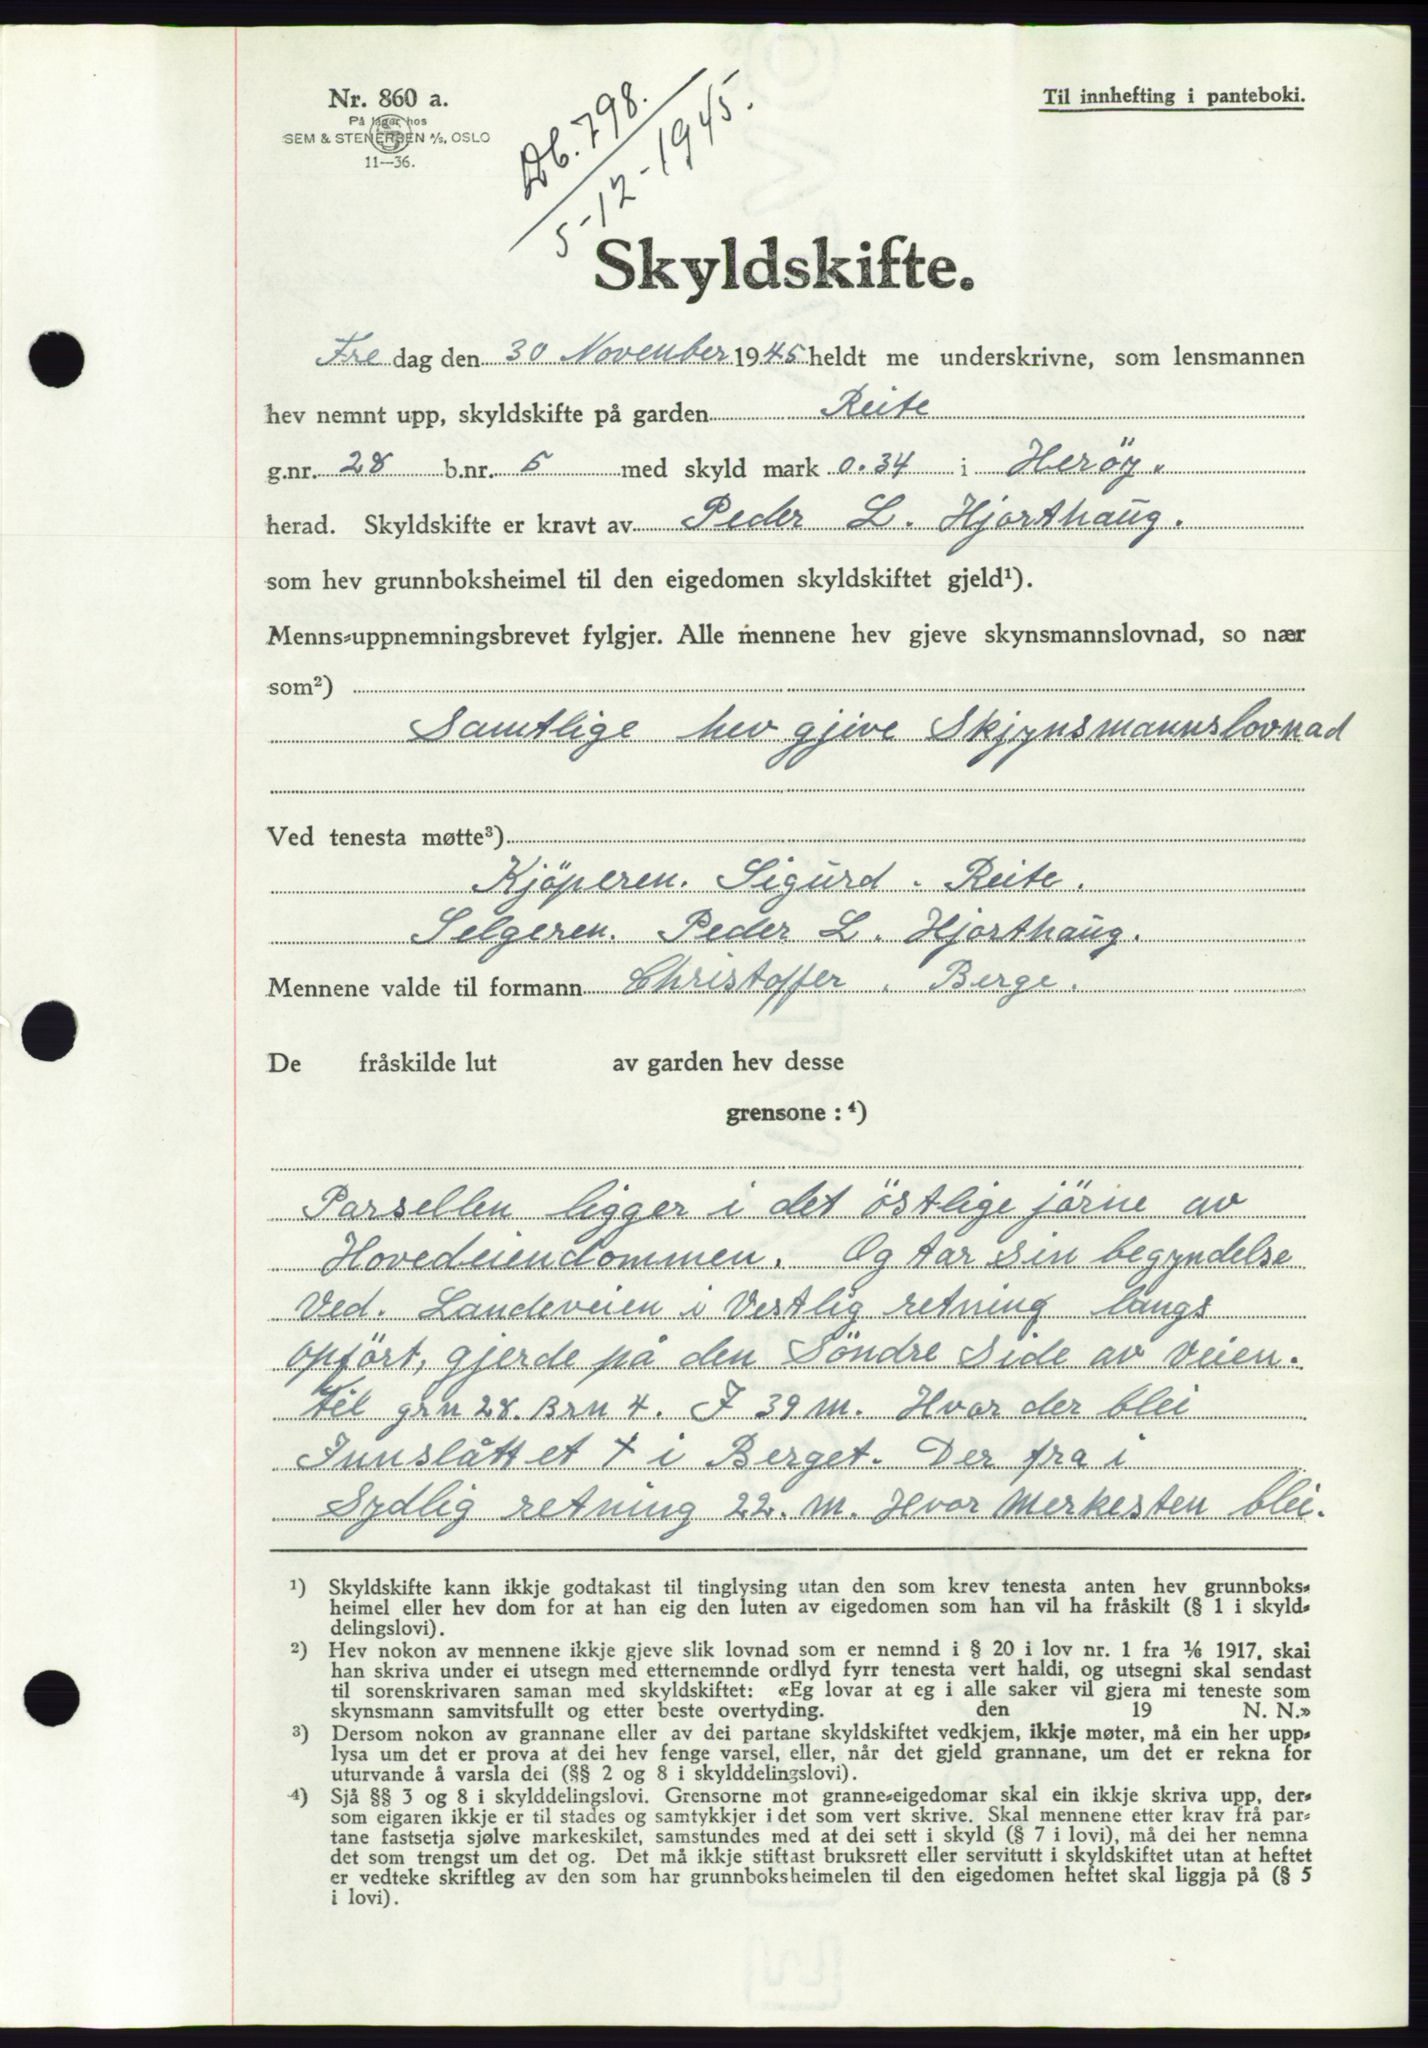 Nr. 860 a.
På lager hos
SEM & STENERSEN A/S, OSLO
11—36.
Db. 798.
5-12-1945.
Til innhefting i panteboki.
Skyldskifte.
Fre dag den 30 November 1945 heldt me underskrivne, som lensmannen
hev nemnt upp, skyldskifte på garden Reite
g.nr. 28 b.nr. 5 med skyld mark 0.34 i Heröy.
herad. Skyldskifte er kravt av Peder L. Hjorthaug.
som hev grunnboksheimel til den eigedomen skyldskiftet gjeld¹).
Menns-uppnemningsbrevet fylgjer. Alle mennene hev gjeve skynsmannslovnad, so nær
som²)
Samtlige hev gjive Skjynsmannslovnad
Ved tenesta møtte³)
Kjöperen. Sigurd. Reite.
Selgeren. Peder L. Hjorthaug.
Mennene valde til formann Christoffer. Berge.
De fråskilde lut av garden hev desse
grensone : ⁴)
Parsellen ligger i det östlige jörne av
Hovedeiendommen. Og tar sin begyndelse
Ved. Landeveien i Vestlig retning langs
opfört, gjerde på den Söndre Side av Veien.
til grn 28. Brn 4. I 39 m. Hvor der blei
Innslåttet + i Berget. Der fra i
Sydlig retning 22. m. Hvor Merkesten blei.
¹) Skyldskifte kann ikkje godtakast til tinglysing utan den som krev tenesta anten hev grunnboks-
heimel eller hev dom for at han eig den luten av eigedomen som han vil ha fråskilt (§ 1 i skyld-
delingslovi).
²) Hev nokon av mennene ikkje gjeve slik lovnad som er nemnd i § 20 i lov nr. 1 fra 1/6 1917, skal
han skriva under ei utsegn med etternemnde ordlyd fyrr tenesta vert haldi, og utsegni skal sendast
til sorenskrivaren saman med skyldskiftet: «Eg lovar at eg i alle saker vil gjera mi teneste som
skynsmann samvitsfullt og etter beste overtyding. den 19 N. N.»
³) Dersom nokon av grannane eller av dei partane skyldskiftet vedkjem, ikkje møter, må ein her upp-
lysa um det er prova at dei hev fenge varsel, eller, når det gjeld grannane, um det er rekna for
uturvande å varsla dei (§§ 2 og 8 i skylddelingslovi).
⁴) Sjå §§ 3 og 8 i skylddelingslovi. Grensorne mot granne-eigedomar skal ein ikkje skriva upp, der-
som eigaren ikkje er til stades og samtykkjer i det som vert skrive. Skal mennene etter krav frå par-
tane fastsetja sjølve markeskilet, samstundes med at dei sett i skyld (§ 7 i lovi), må dei her nemna
det som trengst um det og. Det må ikkje stiftast bruksrett eller servitutt i skyldskiftet utan at heftet
er vedteke skriftleg av den som har grunnboksheimelen til den eigedomen heftet skal liggja på (§ 5
i lovi).